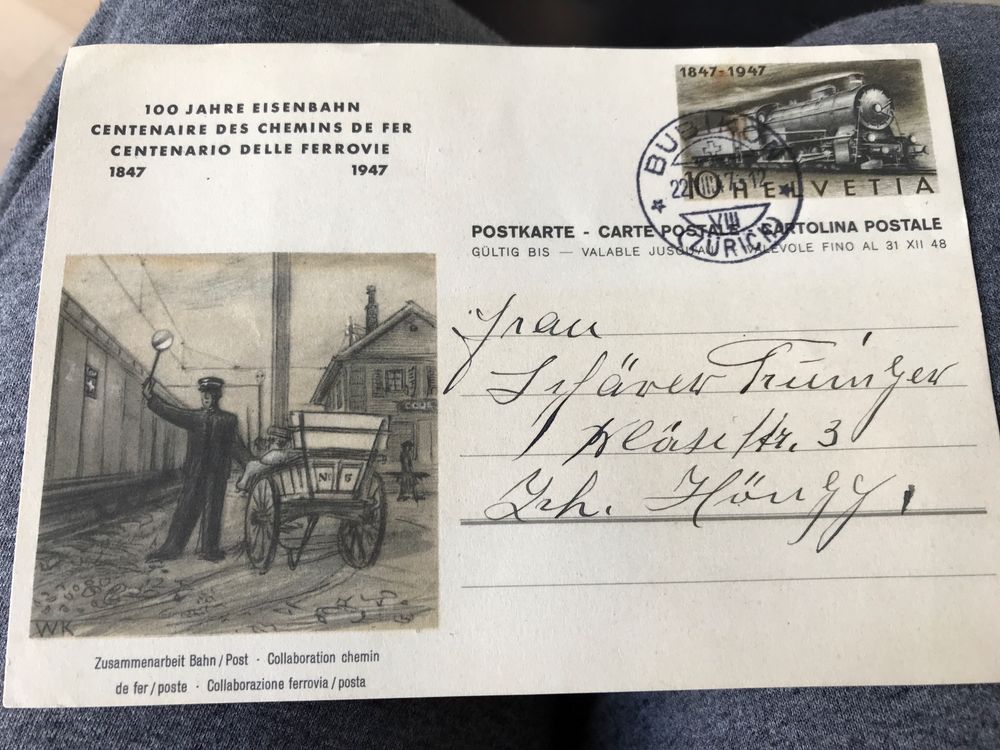 100 JAHRE EISENBAHN
CENTENAIRE DES CHEMINS DE FER
CENTENARIO DELLE FERROVIE
1847 1947
1847-1947
10 HELVETIA
BUBIKON
22. 47.-12
VIII
(ZÜRICH)
POSTKARTE - CARTE POSTALE - CARTOLINA POSTALE
GÜLTIG BIS — VALABLE JUSQU'AU — VALEVOLE FINO AL 31 XII 48
Frau
Schärer
str. 3
Zch. Höngg
No 5
WK
Zusammenarbeit Bahn / Post · Collaboration chemin
de fer / poste · Collaborazione ferrovia / posta